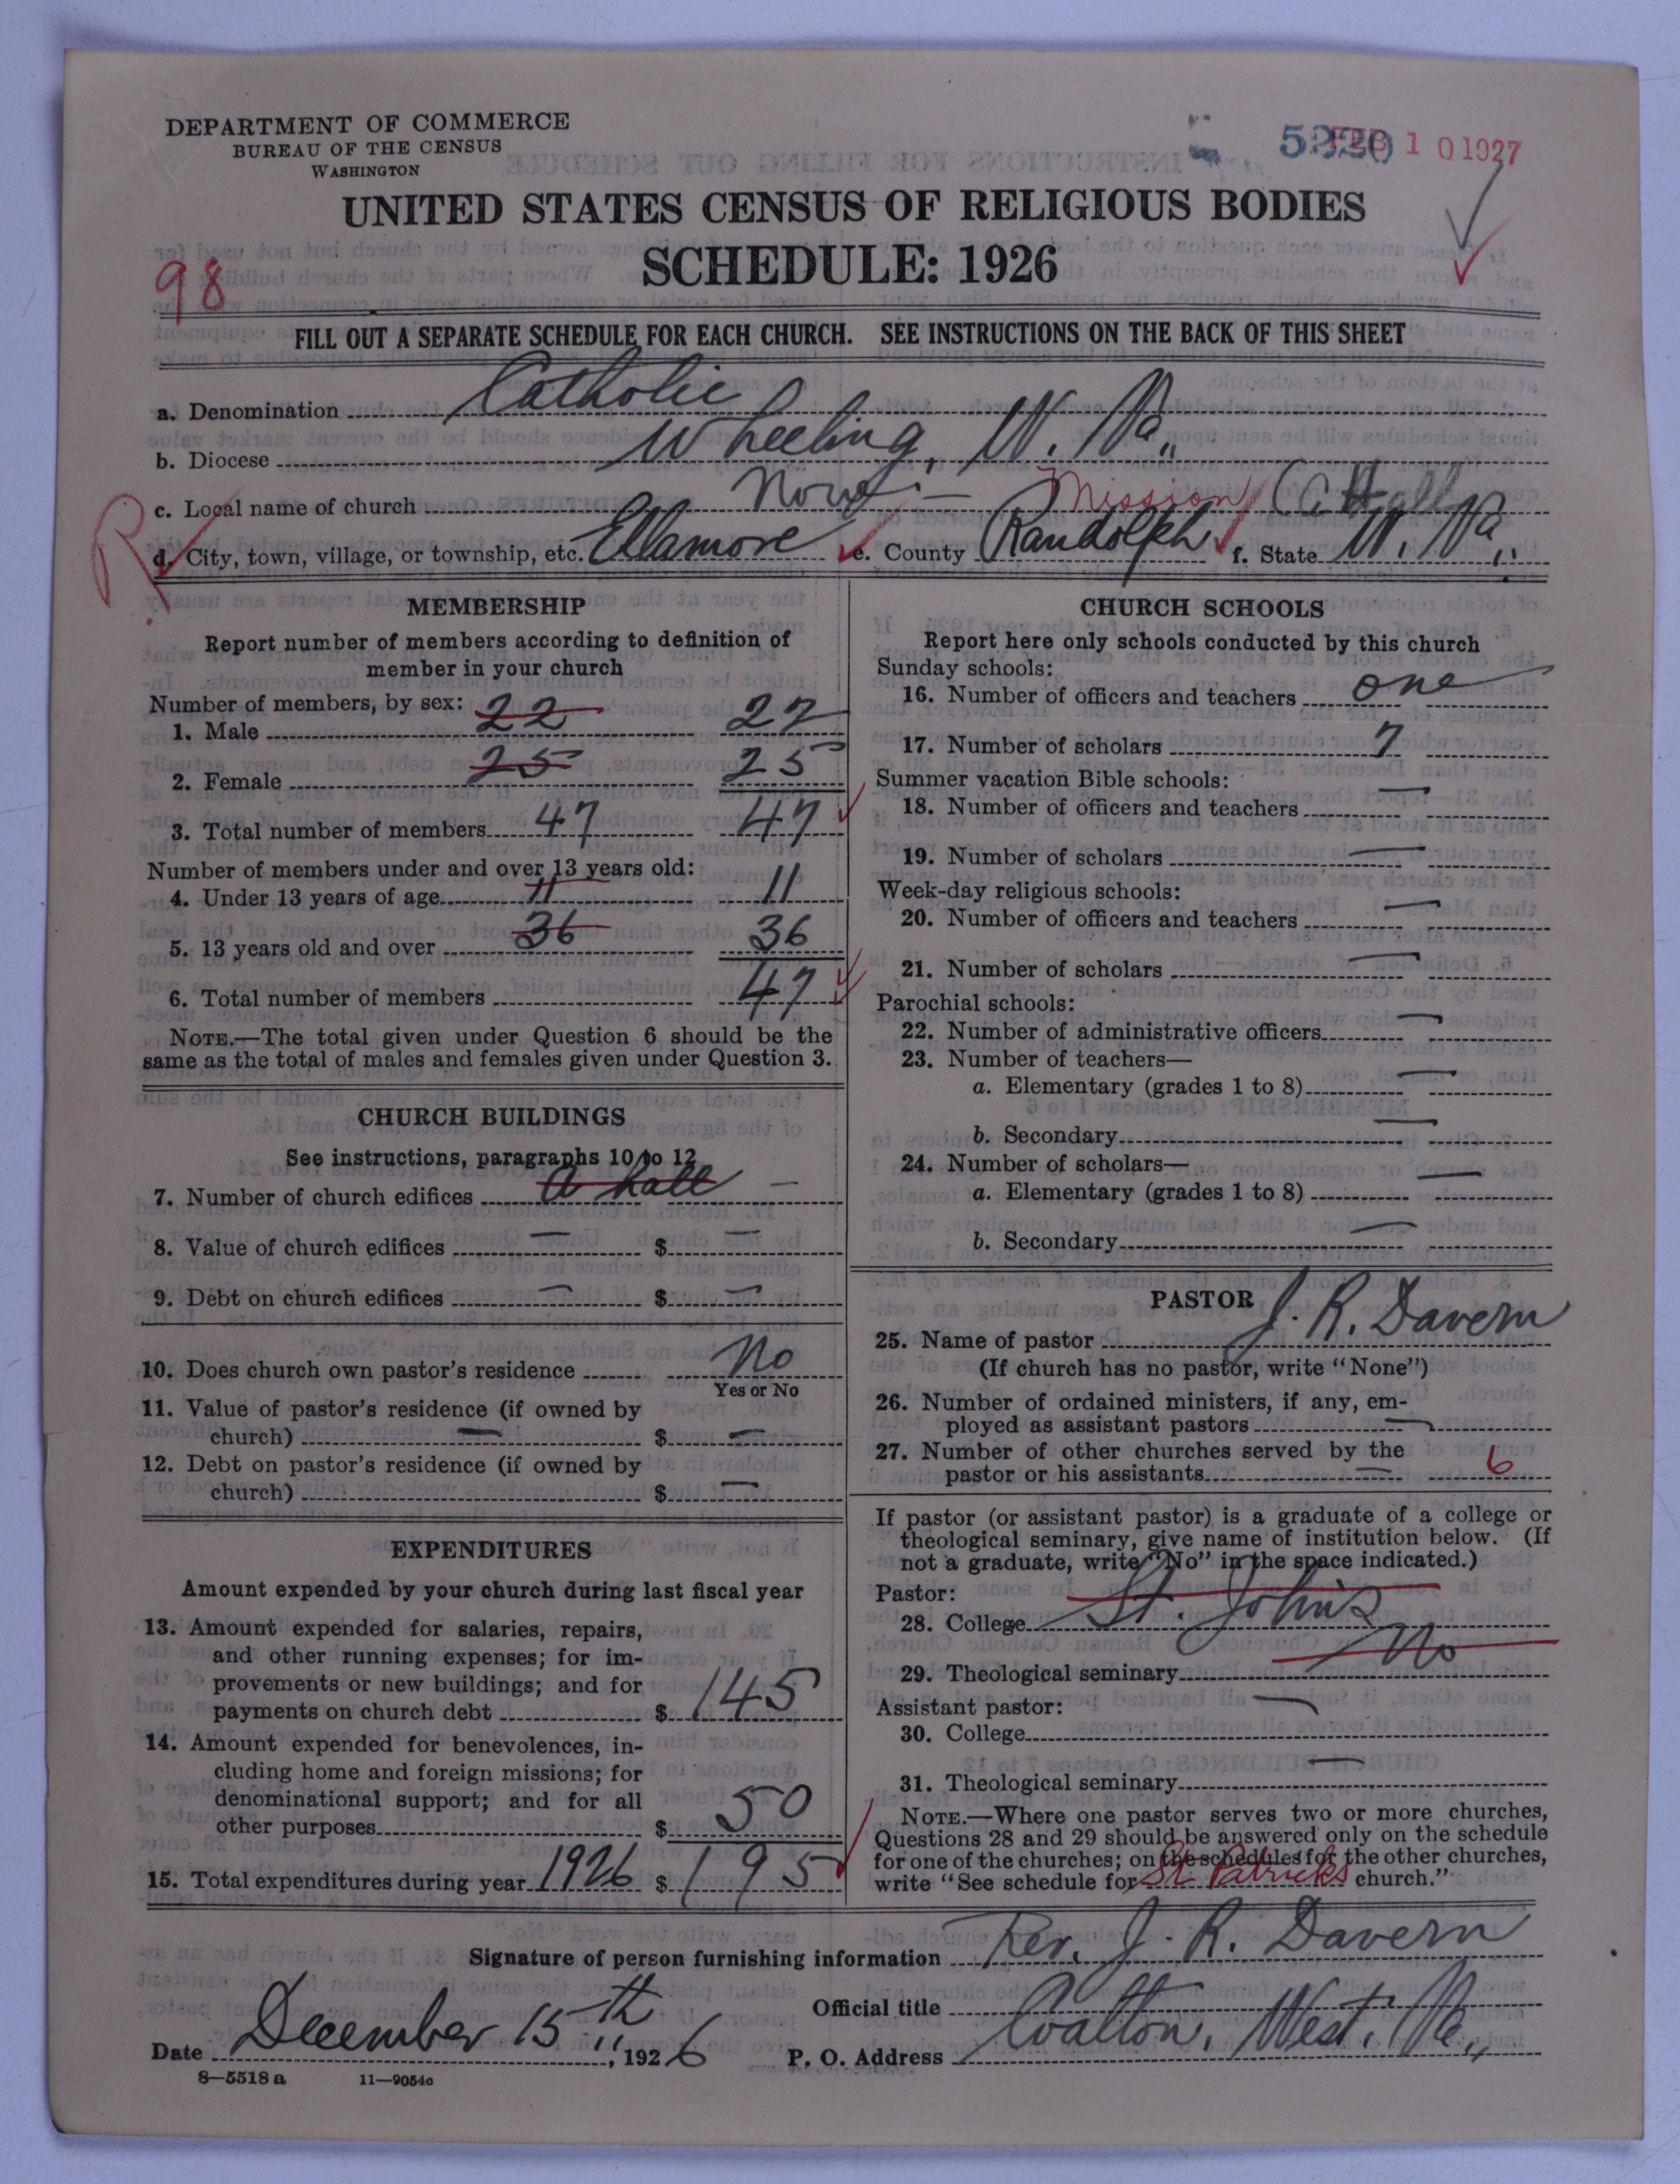 DEPARTMENT OF COMMERCE
BUREAU OF THE CENSUS
WASHINGTON
5220 FEB 10 1927
UNITED STATES CENSUS OF RELIGIOUS BODIES
SCHEDULE: 1926
98
FILL OUT A SEPARATE SCHEDULE FOR EACH CHURCH. SEE INSTRUCTIONS ON THE BACK OF THIS SHEET
a. Denomination Catholic
b. Diocese Wheeling, W. Va.
c. Local name of church None – Mission (A Hall)
R
d. City, town, village, or township, etc. Ellamore e. County Randolph f. State W. Va.
MEMBERSHIP
Report number of members according to definition of
member in your church
Number of members, by sex:
1. Male 22 22
2. Female 25 25
3. Total number of members 47 47
Number of members under and over 13 years old:
4. Under 13 years of age 11 11
5. 13 years old and over 36 36
6. Total number of members 47
NOTE.—The total given under Question 6 should be the
same as the total of males and females given under Question 3.
CHURCH BUILDINGS
See instructions, paragraphs 10 to 12
7. Number of church edifices a hall —
8. Value of church edifices — $ —
9. Debt on church edifices — $ —
10. Does church own pastor's residence No
Yes or No
11. Value of pastor's residence (if owned by
church) — $ —
12. Debt on pastor's residence (if owned by
church) $ —
EXPENDITURES
Amount expended by your church during last fiscal year
13. Amount expended for salaries, repairs,
and other running expenses; for im-
provements or new buildings; and for
payments on church debt $ 145
14. Amount expended for benevolences, in-
cluding home and foreign missions; for
denominational support; and for all
other purposes $ 50
15. Total expenditures during year 1926 $ 195
CHURCH SCHOOLS
Report here only schools conducted by this church
Sunday schools:
16. Number of officers and teachers one
17. Number of scholars 7
Summer vacation Bible schools:
18. Number of officers and teachers —
19. Number of scholars —
Week-day religious schools:
20. Number of officers and teachers —
21. Number of scholars —
Parochial schools:
22. Number of administrative officers —
23. Number of teachers—
a. Elementary (grades 1 to 8) —
b. Secondary —
24. Number of scholars—
a. Elementary (grades 1 to 8) —
b. Secondary —
PASTOR
25. Name of pastor J. R. Davern
(If church has no pastor, write "None")
26. Number of ordained ministers, if any, em-
ployed as assistant pastors —
27. Number of other churches served by the
pastor or his assistants — 6
If pastor (or assistant pastor) is a graduate of a college or
theological seminary, give name of institution below. (If
not a graduate, write "No" in the space indicated.)
Pastor:
28. College St. John's
29. Theological seminary No
Assistant pastor:
30. College —
31. Theological seminary —
NOTE.—Where one pastor serves two or more churches,
Questions 28 and 29 should be answered only on the schedule
for one of the churches; on the schedules for the other churches,
write "See schedule for St. Patricks church."
Signature of person furnishing information Rev. J. R. Davern
Official title
Date December 15th, 1926 P. O. Address Coalton, West. Va.,
8—5518 a 11—9054c